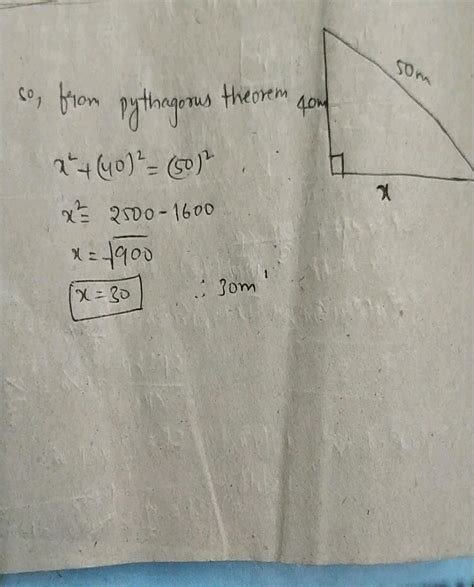 so, from pythagorus theorem
40m
50m
x
x²+(40)²=(50)²
x²= 2500-1600
x=√900
x=30 ∴ 30m